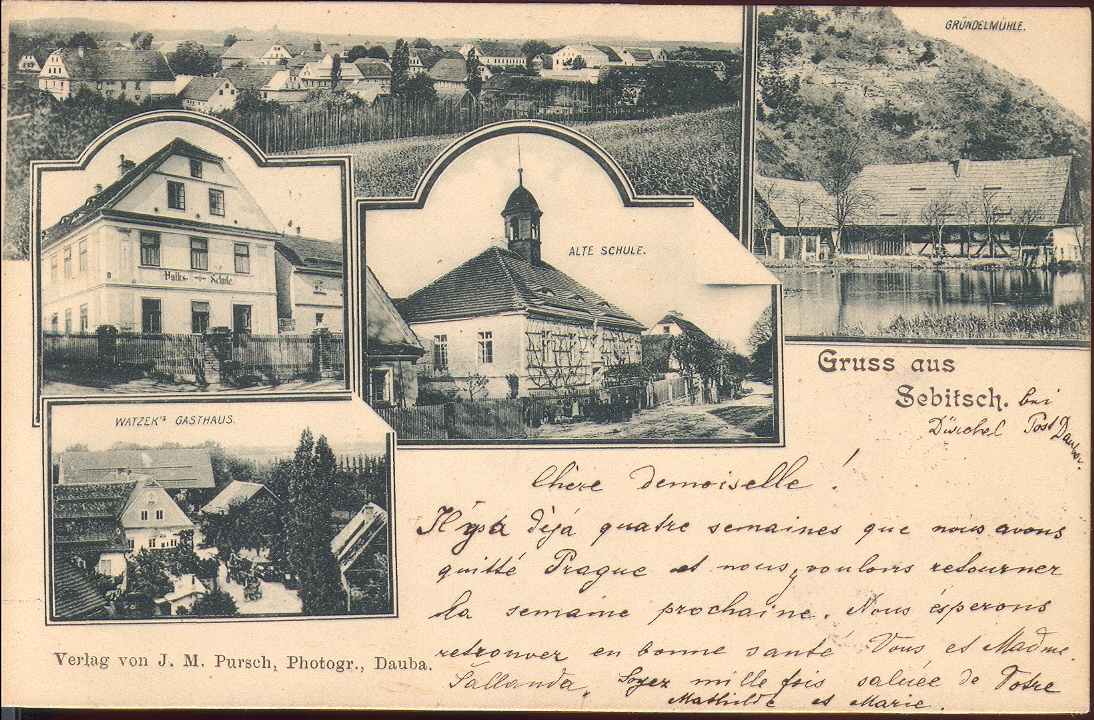 GRÜNDELMÜHLE.
ALTE SCHULE.
Volks- Schule.
WATZEK'S GASTHAUS.
Gruss aus
Sebitsch. bei
Düschel Post Dauba.
Chère demoiselle!
Il y a dèjà quatre semaines que nous avons
quitté Prague et nous y voulons retourner
la semaine prochaine. Nous ésperons
retrouver en bonne santé Vous et Madme.
Sallanda. Soyez mille fois saluée de Votre
Mathilde et Marie.
Verlag von J. M. Pursch, Photogr., Dauba.